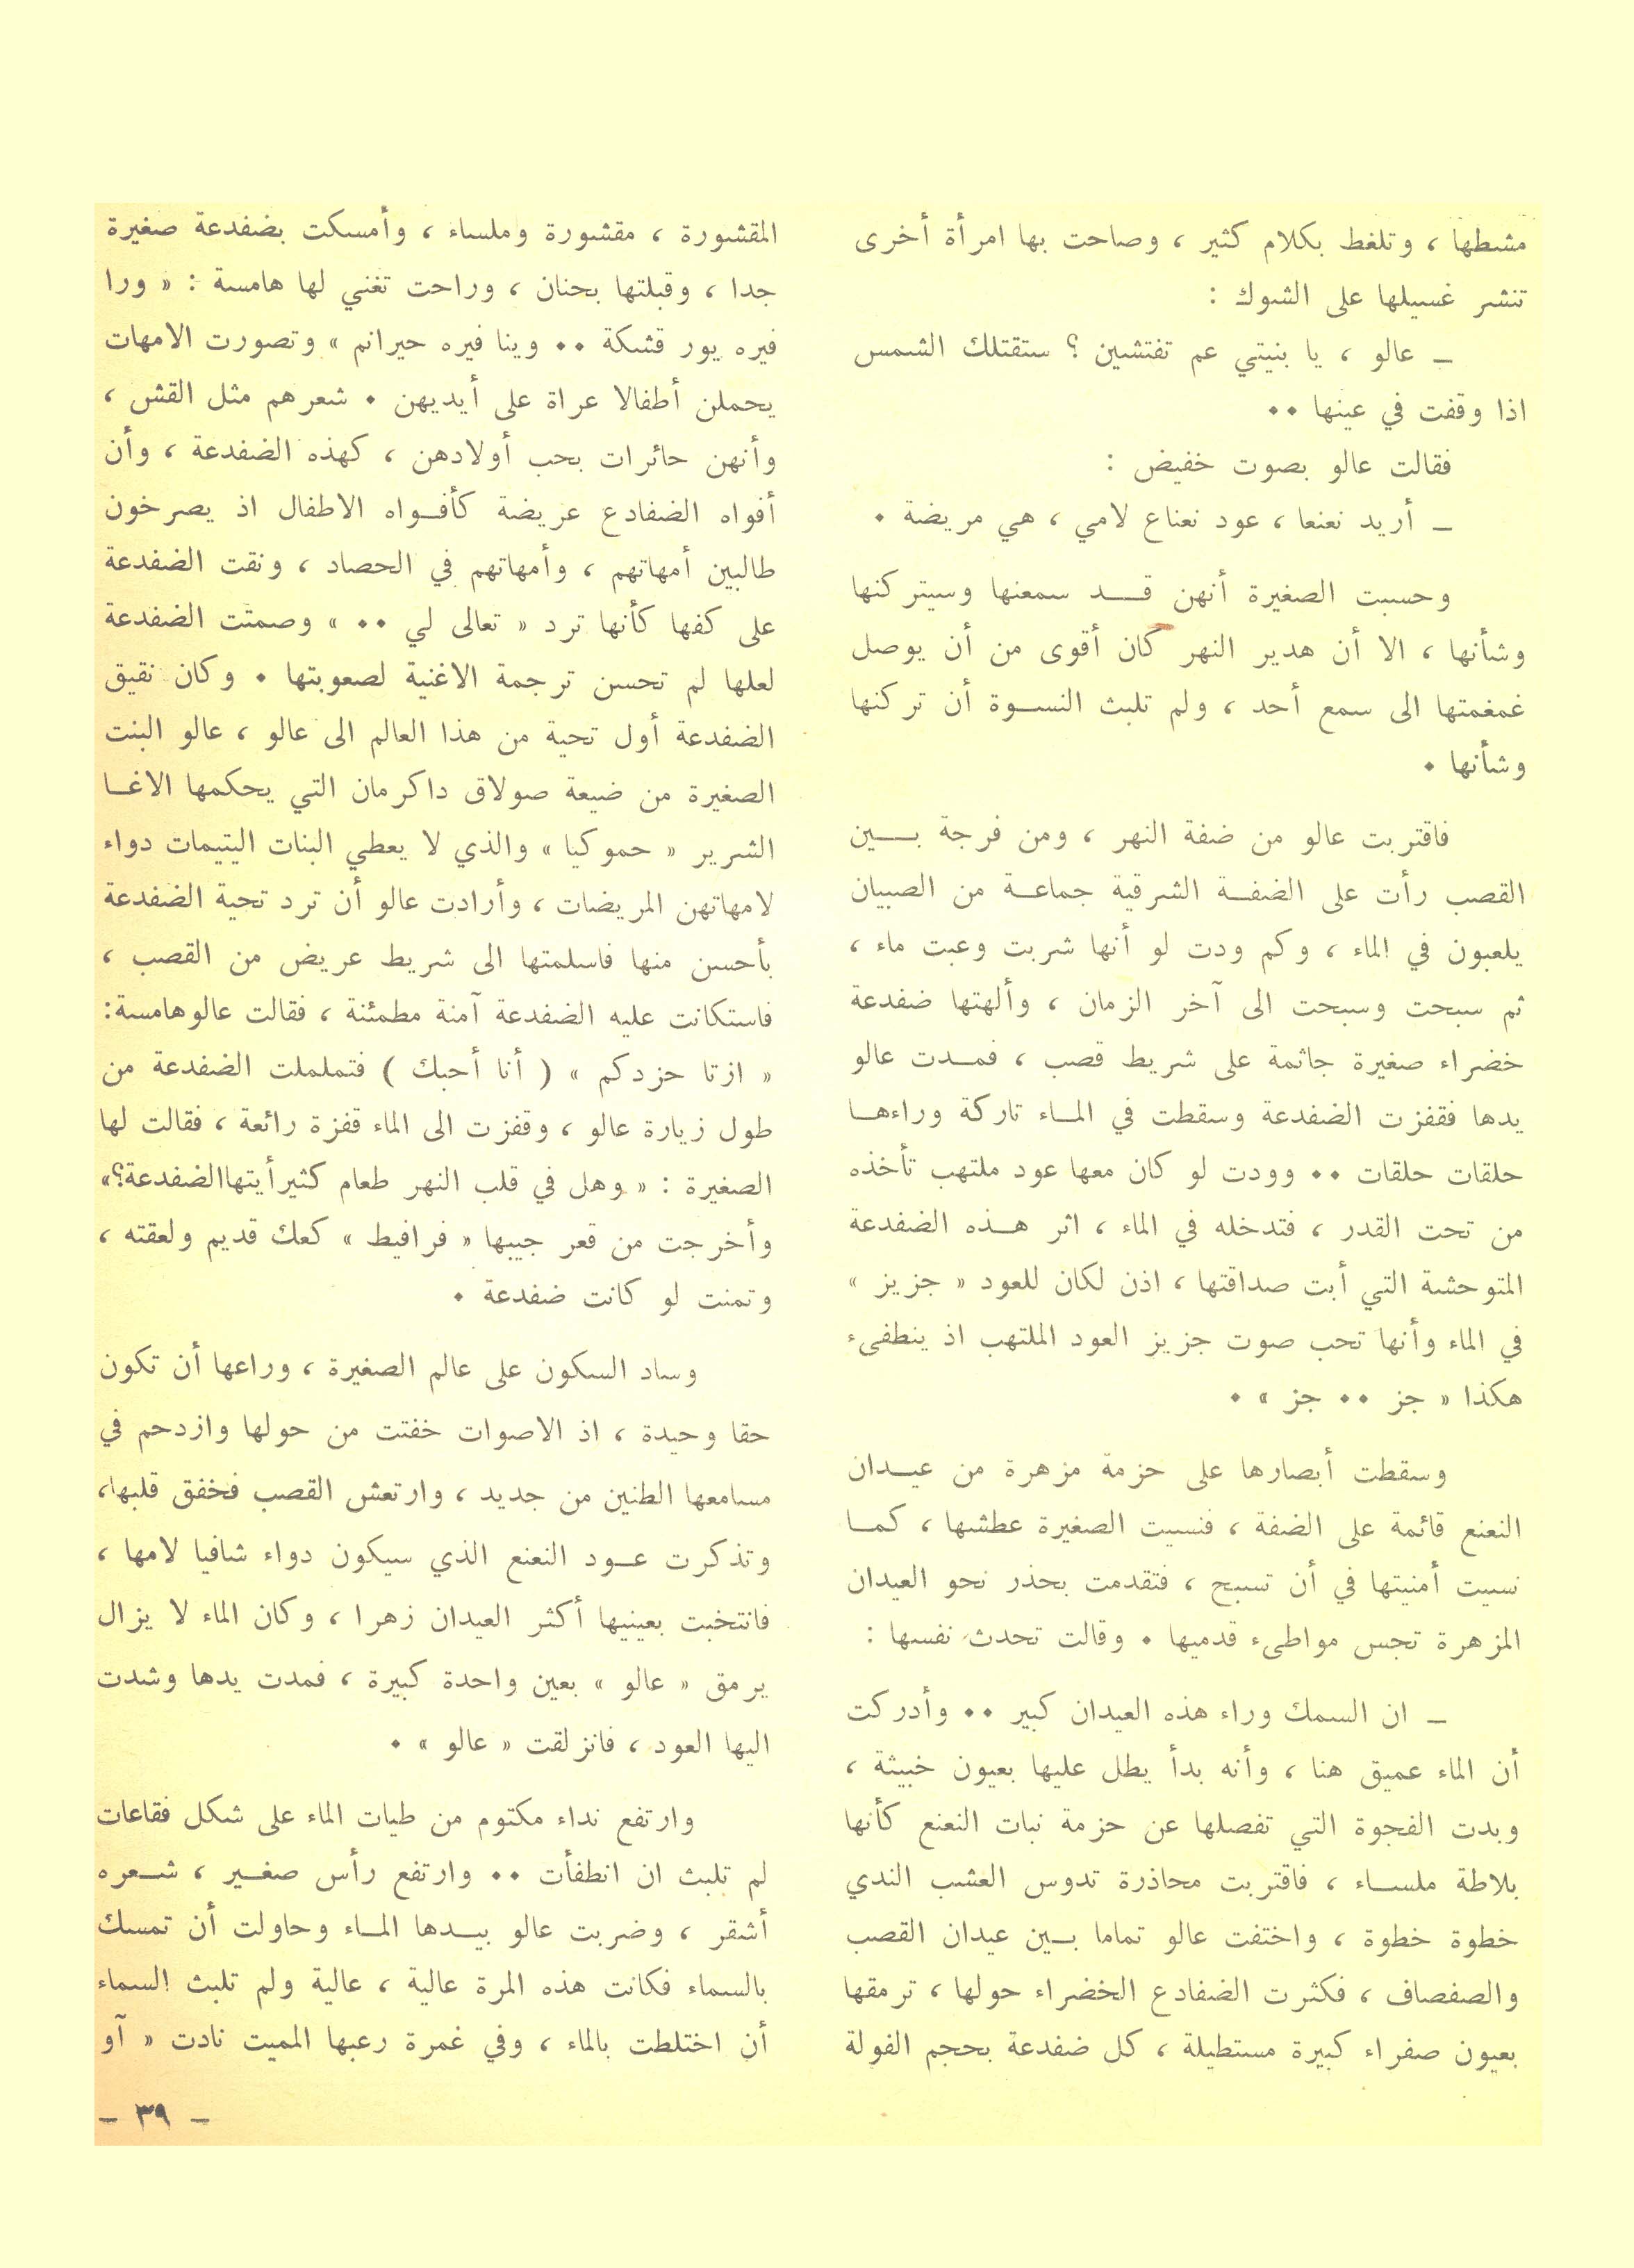 مشطها ، وتلغط بكلام كثير ، وصاحت بها امرأة أخرى
تنشر غسيلها على الشوك :
ــ عالو ، يا بنيتي عم تفتشين ؟ ستقتلك الشمس
اذا وقفت في عينها ٠٠
فقالت عالو بصوت خفيض :
ــ أريد نعنعا ، عود نعناع لامي ، هي مريضة ٠
وحسبت الصغيرة أنهن قــد سمعنها وسيتركنها
وشأنها ، الا أن هدير النهر كان أقوى من أن يوصل
غمغمتها الى سمع أحد ، ولم تلبث النسوة أن تركنها
وشأنها ٠
فاقتربت عالو من ضفة النهر ، ومن فرجة بــين
القصب رأت على الضفــة الشرقية جماعــة من الصبيان
يلعبون في الماء ، وكم ودت لو أنها شربت وعبت ماء ،
ثم سبحت وسبحت الى آخر الزمان ، وألهتها ضفدعة
خضراء صغيرة جاثمة على شريط قصب ، فمــدت عالو
يدها فقفزت الضفدعة وسقطت في المــاء تاركة وراءهــا
حلقات حلقات ٠٠ وودت لو كان معها عود ملتهب تأخذه
من تحت القدر ، فتدخله في الماء ، اثر هــذه الضفدعة
المتوحشة التي أبت صداقتها ، اذن لكان للعود « جزيز »
في الماء وأنها تحب صوت جزيز العود الملتهب اذ ينطفىء
هكذا « جز ٠٠ جز » ٠
وسقطت أبصارها على حزمة مزهرة من عيــدان
النعنع قائمة على الضفة ، فنسيت الصغيرة عطشها ، كمــا
نسيت أمنيتها في أن تسبح ، فتقدمت بحذر نحو العيدان
المزهرة تجس مواطىء قدميها ٠ وقالت تحدث نفسها :
ــ ان السمك وراء هذه العيدان كبير ٠٠ وأدركت
أن الماء عميق هنا ، وأنه بدأ يطل عليها بعيون خبيثة ،
وبدت الفجوة التي تفصلها عن حزمة نبات النعنع كأنها
بلاطة ملســاء ، فاقتربت محاذرة تدوس العشب الندي
خطوة خطوة ، واختفت عالو تماما بــين عيدان القصب
والصفصاف ، فكثرت الضفادع الخضراء حولها ، ترمقها
بعيون صفراء كبيرة مستطيلة ، كل ضفدعة بحجم الفولة
المقشورة ، مقشورة وملساء ، وأمسكت بضفدعة صغيرة
جدا ، وقبلتها بحنان ، وراحت تغني لها هامسة : « ورا
فيره يور قشكة ٠٠ وينا فيره حيرانم » وتصورت الامهات
يحملن أطفالا عراة على أيديهن ٠ شعرهم مثل القش ،
وأنهن حائرات بحب أولادهن ، كهذه الضفدعة ، وأن
أفواه الضفادع عريضة كأفــواه الاطفال اذ يصرخون
طالبين أمهاتهم ، وأمهاتهم في الحصاد ، ونقت الضفدعة
على كفها كأنها ترد « تعالى لي ٠٠ » وصمتت الضفدعة
لعلها لم تحسن ترجمة الاغنية لصعوبتها ٠ وكان نقيق
الضفدعة أول تحية من هذا العالم الى عالو ، عالو البنت
الصغيرة من ضيعة صولاق داكرمان التي يحكمها الاغــا
الشرير « حموكيا » والذي لا يعطي البنات اليتيمات دواء
لامهاتهن المريضات ، وأرادت عالو أن ترد تحية الضفدعة
بأحسن منها فاسلمتها الى شريط عريض من القصب ،
فاستكانت عليه الضفدعة آمنة مطمئنة ، فقالت عالو هامسة:
« ازتا حزدكم » ( أنا أحبك ) فتململت الضفدعة من
طول زيارة عالو ، وقفزت الى الماء قفزة رائعة ، فقالت لها
الصغيرة : « وهل في قلب النهر طعام كثير أيتها الضفدعة؟»
وأخرجت من قعر جيبها « فرافيط » كعك قديم ولعقته ،
وتمنت لو كانت ضفدعة ٠
وساد السكون على عالم الصغيرة ، وراعها أن تكون
حقا وحيدة ، اذ الاصوات خفتت من حولها وازدحم في
مسامعها الطنين من جديد ، وارتعش القصب فخفق قلبها،
وتذكرت عــود النعنع الذي سيكون دواء شافيا لامها ،
فانتخبت بعينيها أكثر العيدان زهرا ، وكان الماء لا يزال
يرمق « عالو » بعين واحدة كبيرة ، فمدت يدها وشدت
اليها العود ، فانزلقت « عالو » ٠
وارتفع نداء مكتوم من طيات الماء على شكل فقاعات
لم تلبث ان انطفأت ٠٠ وارتفع رأس صغــير ، شــعره
أشقر ، وضربت عالو بيــدها المــاء وحاولت أن تمسك
بالسماء فكانت هذه المرة عالية ، عالية ولم تلبث السماء
أن اختلطت بالماء ، وفي غمرة رعبها المميت نادت « آو
ــ ٣٩ ــ